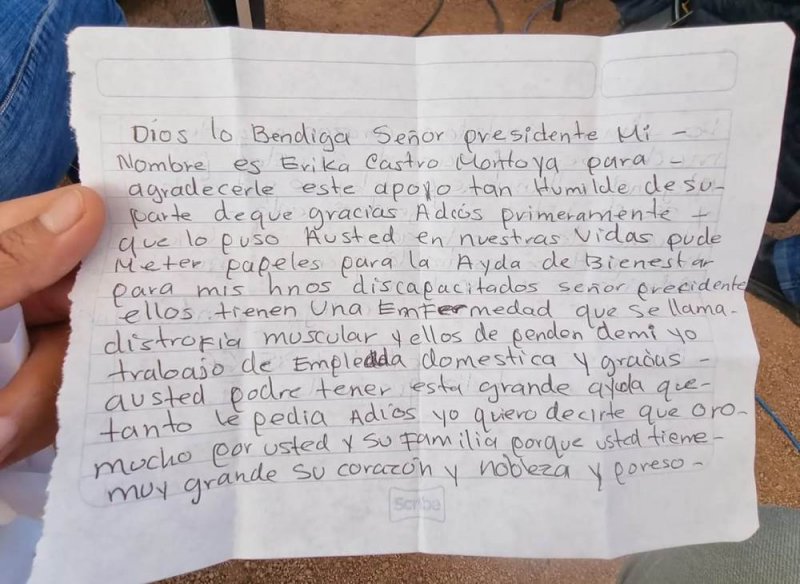 Dios lo Bendiga Señor presidente Mi -
Nombre es Erika Castro Montoya para -
agradecerle este apoyo tan Humilde desu-
parte deque gracias Adios primeramente +
que lo puso Austed en nuestras Vidas pude
Meter papeles para la Ayda de Bienestar
para mis hnos discapacitados señor precidente
ellos tienen Una Emfermedad que se llama-
distrofia muscular y ellos de penden demi yo
trabajo de Empleadda domestica y gracias -
austed podre tener esta grande ayuda que-
tanto le pedia Adios yo quiero decirte que oro-
mucho por usted y su familia porque usted tiene-
muy grande su corazón y nobleza y poreso -
Scribe